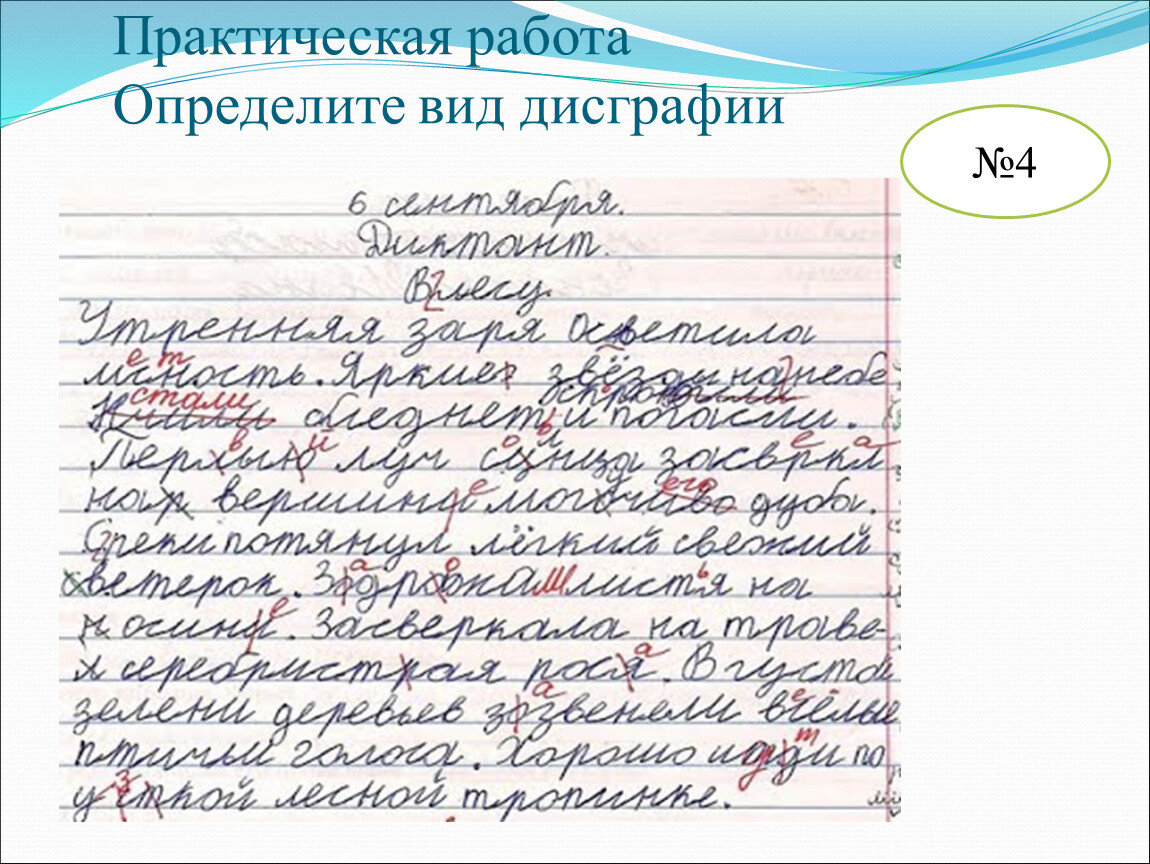 Практическая работа
Определите вид дисграфии
№4
6 сентября.
Диктант.
В лесу.
Утренняя заря осветила
месность. Яркие звёзды на небе
стали обледнет и погасли.
Перхыю луч сцнца засвркл
нар вершину могочиво дуба.
Среки потянул лёгкий свежий
ветерок. Здрожал листя на
осину. Засверкала на траве
х серебристрая рося. В густа
зелени деревьев зозвенели вчёлые
птичьи голоса. Хорошо по
усткой лесной тропинке.